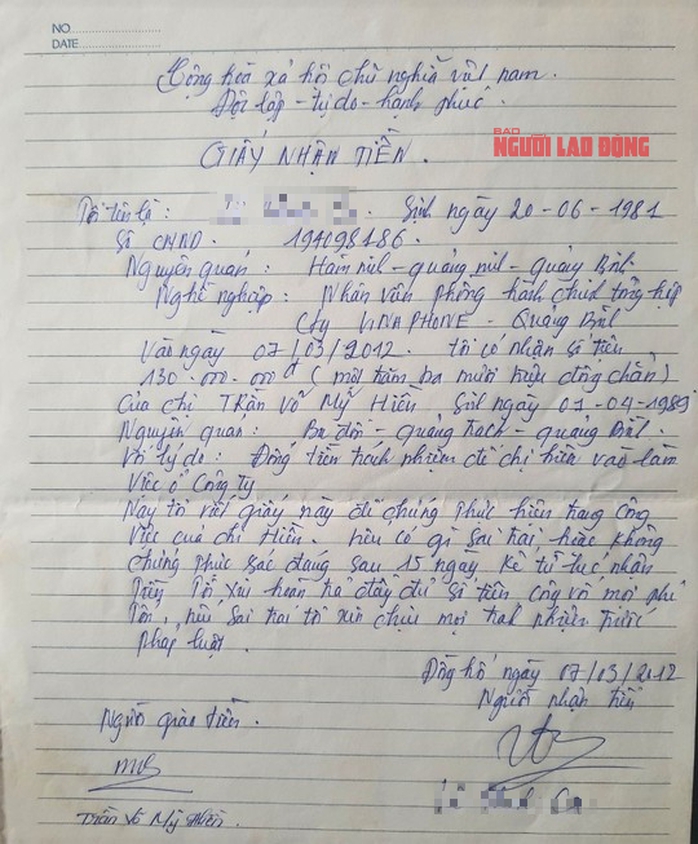 NO
DATE
Cộng hoà xả hội chủ nghĩa việt nam.
Độc lập - tự do - hạnh phúc.
BÁO
NGƯỜI LAO ĐỘNG
GIẤY NHẬN TIỀN.
Tôi tên là: Sinh ngày 20-06-1981
Số CMND. 194098186.
Nguyên quán: Hàm ninh - quảng ninh - quảng Bình.
Nghề nghiệp: Nhân viên phòng hành chính tổng hợp
Cty VINAPHONE - Quảng Bình
Vào ngày 07/03/2012. tôi có nhận số tiền
130.000.000đ (một trăm ba mươi triệu đồng chẵn)
Của chị Trần Võ Mỹ Hiền Sinh ngày 01-04-1989
Nguyên quan: Ba đồn - quảng trach - quảng Bình.
Với lý do: Đóng tiền trách nhiệm để chị hiền vào làm
Việc ở Công ty
Nay tôi viết giấy này để chứng thực hiện trang công
Việc của chi Hiền. nếu có gì sai trai, hoăc không
chứng thực xác đáng sau 15 ngày kể từ lúc nhận
tiền Tôi xin hoàn trả đầy đủ số tiền cộng với mọi phí
Tổn, nếu sai trai tôi xin chịu mọi trách nhiệm trước
pháp luật.
Đồng hới ngày 07/03/2012
Người nhận tiền
Người giao tiền.
Trần Võ Mỹ Hiền.